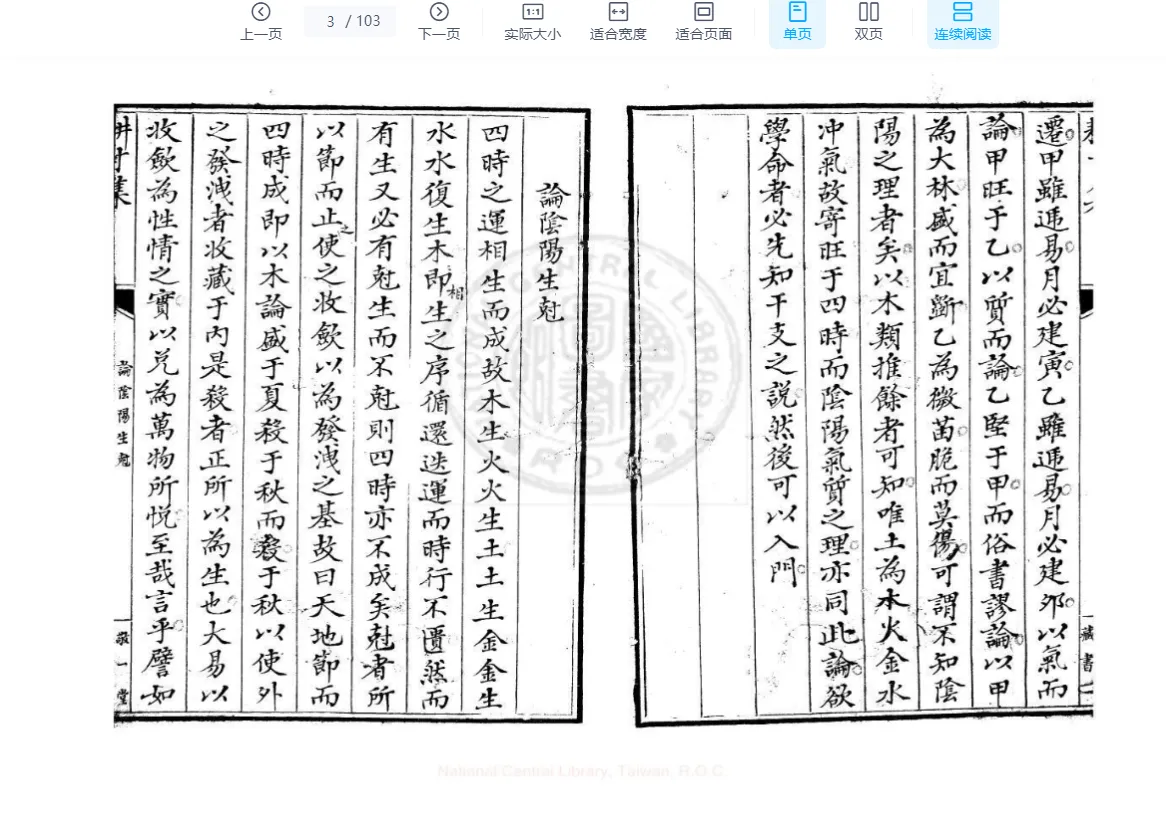 上一页
3 / 103
下一页
实际大小
适合宽度
适合页面
单页
双页
连续阅读
遷甲雖遞易月必建寅乙雖遞易月必建夘以氣而
論甲旺于乙以質而論乙堅于甲而俗書謬論以甲
為大林盛而宜斷乙為微苗脆而莫傷可謂不知陰
陽之理者矣以木類推餘者可知唯土為木火金水
冲氣故寄旺于四時而陰陽氣質之理亦同此論欲
學命者必先知干支之說然後可以入門
藏書
論陰陽生尅
四時之運相生而成故木生火火生土土生金金生
水水復生木即相生之序循還迭運而時行不匱然而
有生又必有尅生而不尅則四時亦不成矣尅者所
以節而止之使之收歛以為發洩之基故曰天地節而
四時成即以木論盛于夏殺于秋而殺于秋以使外
之發洩者收藏于內是殺者正所以為生也大易以
收歛為性情之實以兑為萬物所悅至哉言乎譬如
集
論陰陽生尅
敬一堂
NATIONAL CENTRAL LIBRARY
R.O.C
National Central Library, Taiwan, R.O.C